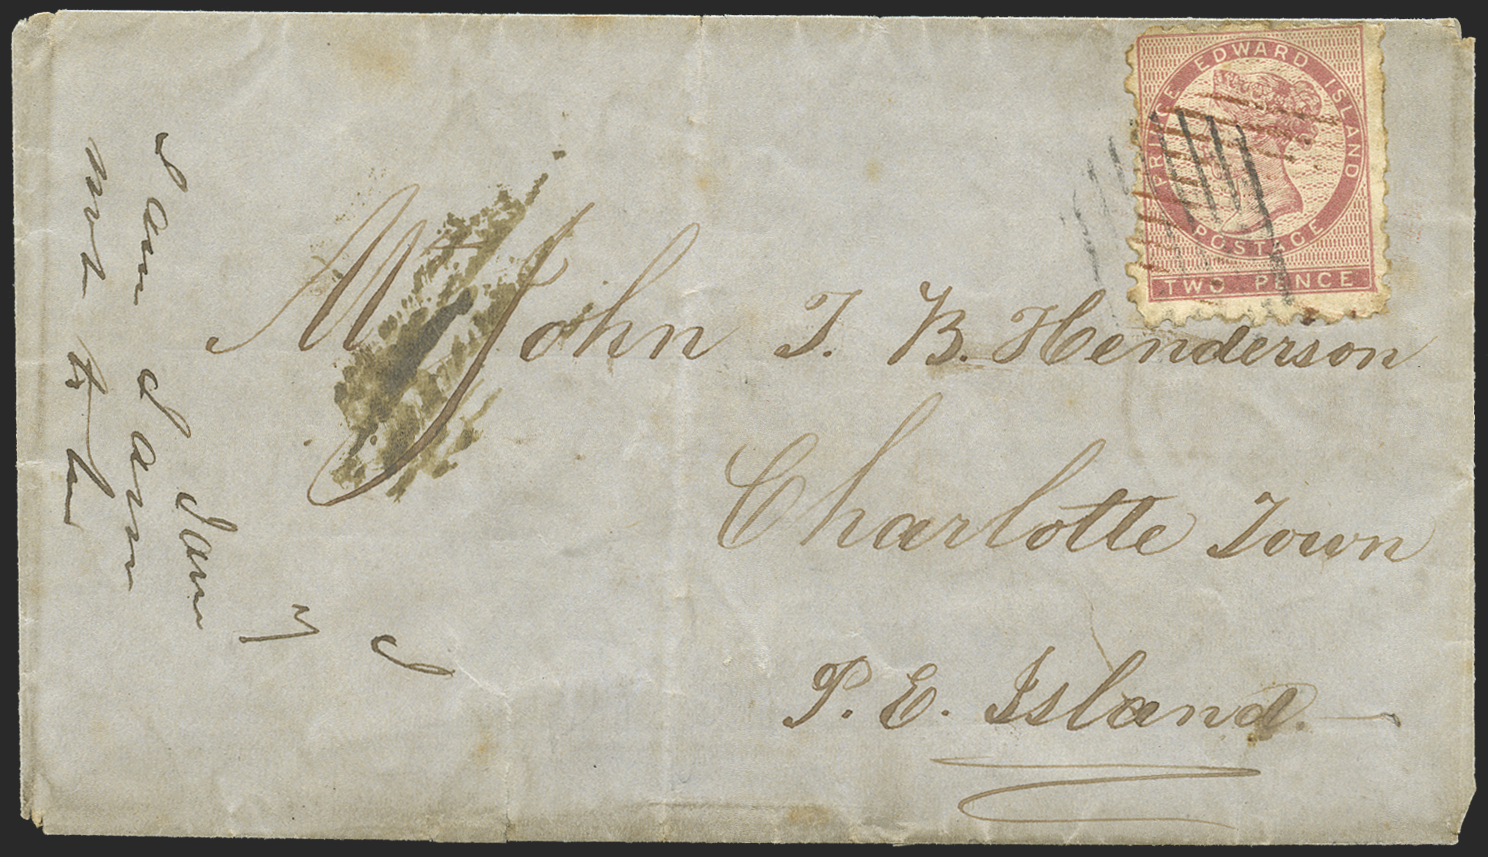 PRINCE EDWARD ISLAND
POSTAGE
TWO PENCE
Mr John T. B. Henderson
Charlotte Town
P. E. Island.
I am I am
not to be